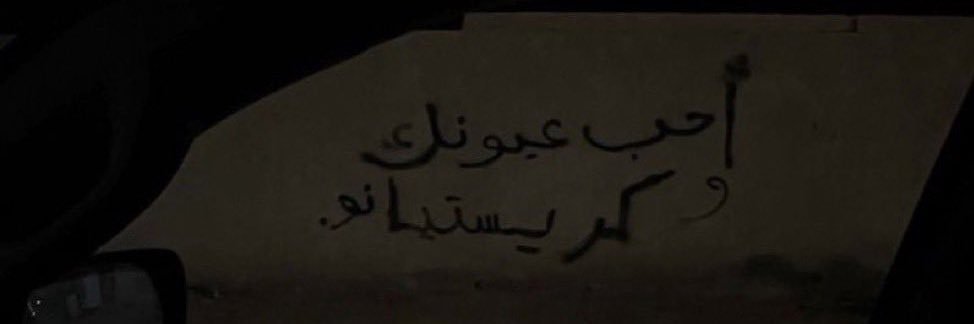 أحب عيونك
و كريستيانو.